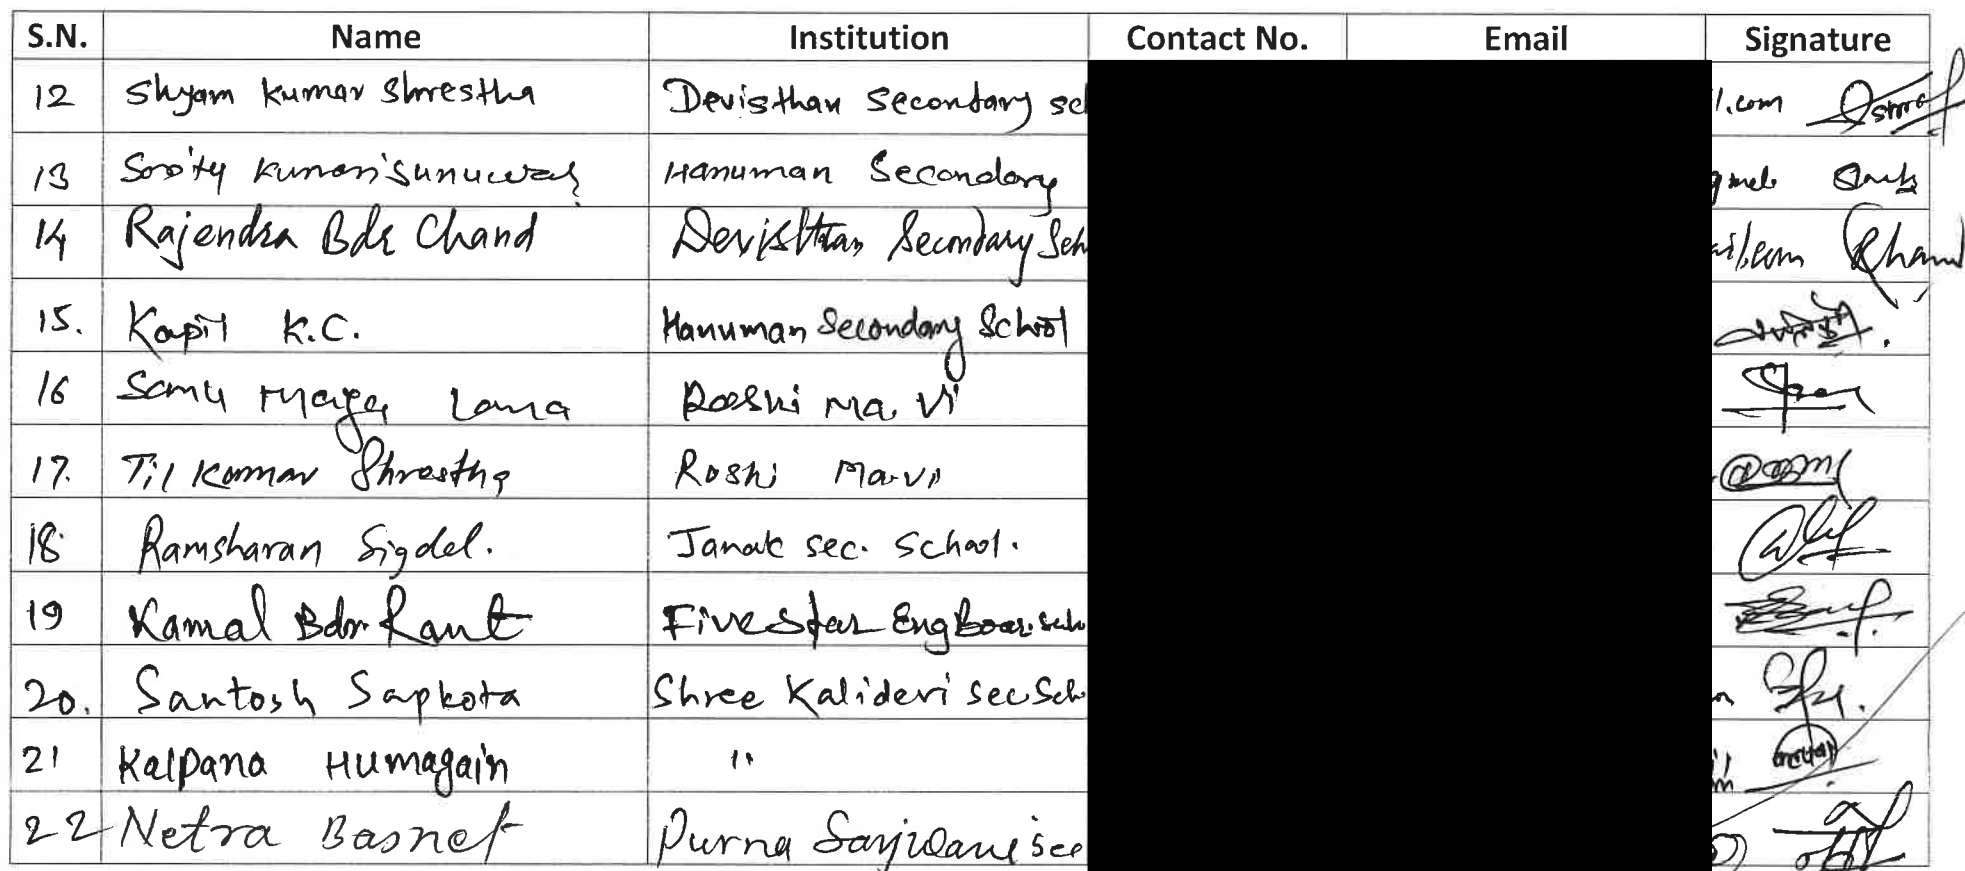 S.N. Name Institution Contact No. Email Signature
12 Shyam Kumar Shrestha Devisthan Secondary sch l.com
13 Kumari Sunuwar Hanuman Secondary
14 Rajendra Bdr Chand Devisthan Secondary Sch ail.com Chand
15. Kapil K.C. Hanuman Secondary School
16 Lama Roshi Ma Vi
17. Til Kumar Shrestha Roshi Ma.Vi
18 Ramsharan Sigdel. Janak sec. School.
19 Kamal Bdr Raut Five Star Eng Boar. sch
20. Santosh Sapkota Shree Kalidevi Sec Sch
21 Kalpana Humagain "
22 Netra Basnet Purna Sanjiwani sec